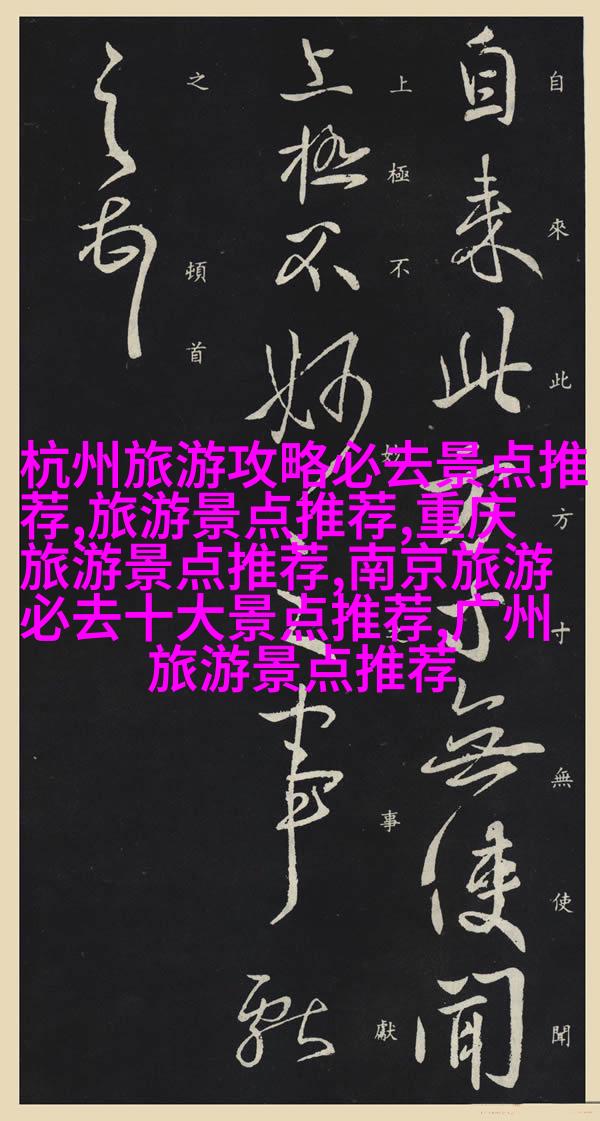 自來此方寸無使聞
自來此方寸無使聞
上極不妙之事獻
上極不妙之事獻
之頓首
之頓首
杭州旅游攻略必去景点推
荐,旅游景点推荐,重庆
旅游景点推荐,南京旅游
必去十大景点推荐,广州
旅游景点推荐